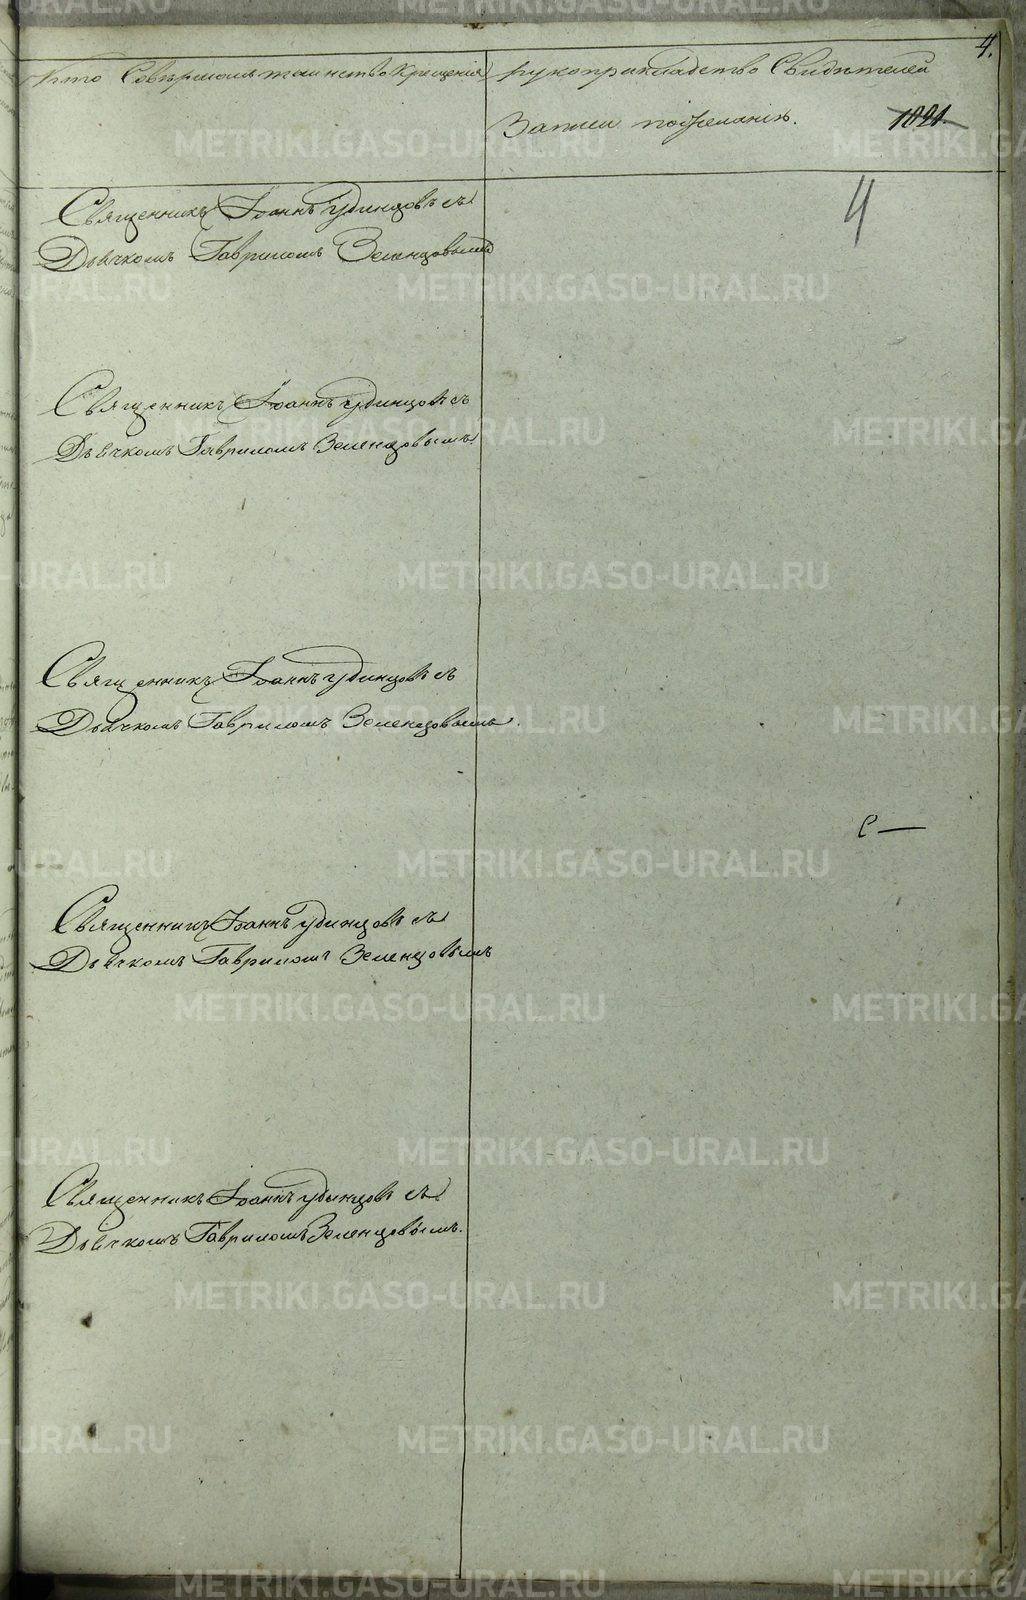 4.
Кто Совершалъ таинство Крещенія
рукоприкладство Свидѣтелей
Записи по желанію.
1821.
4
Священникъ Іоаннъ Удинцовъ съ
Дьячкомъ Гавриломъ Зеленцовымъ
Священникъ Іоаннъ Удинцовъ съ
Дьячкомъ Гавриломъ Зеленцовымъ
Священникъ Іоаннъ Удинцовъ съ
Дьячкомъ Гавриломъ Зеленцовымъ.
Священникъ Іоаннъ Удинцовъ съ
Дьячкомъ Гавриломъ Зеленцовымъ
Священникъ Іоаннъ Удинцовъ съ
Дьячкомъ Гавриломъ Зеленцовымъ.
METRIKI.GASO-URAL.RU